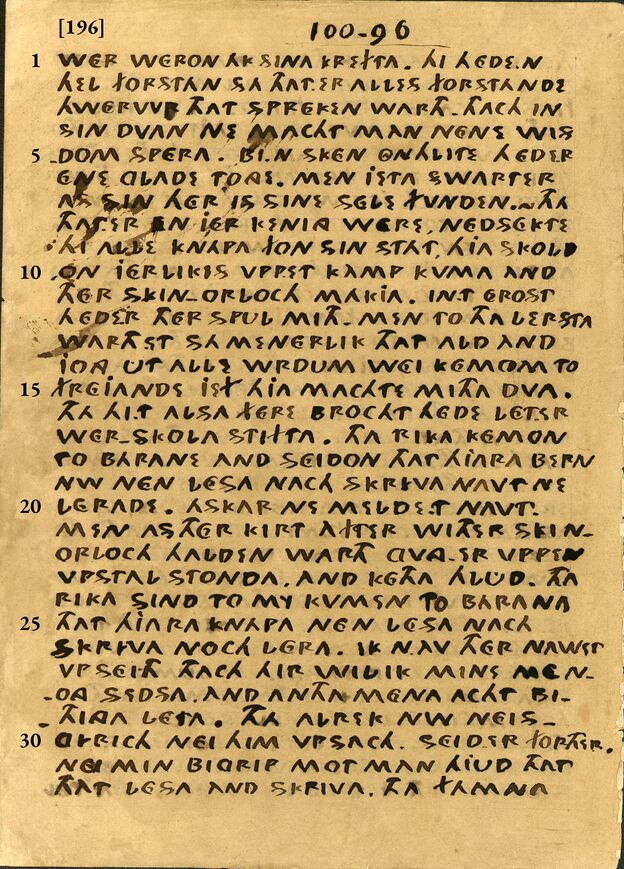 [196]
100-96
1 WER WERON AK SINA KREFTA. HI HEDE.N
HEL FORSTAN SA THAT.ER ALLES FORSTANDE
HWERVVR THAT SPREKEN WARTH. THACH IN
SIN DVAN NE MACHT MAN NENE WIS
5 DOM SPERA. BI.N SKEN ONHLITE HEDER
ENE GLADE TONGE. MEN JETA SWARTER
AS SIN HER IS SINE SELE FVNDEN. THA
THAT.ER EN JER KENING WERE, NEDSEKTE
HI ALLE KNAPA FON SIN STAT, HIA SKOLD
10 ON JERLIKIS VPPET KAMP KVMA AND
THER SKIN-ORLOCH MAKIA. IN.T EROST
HEDER THER SPUL MITH. MEN TO THA LERSTA
WARTHST SA MENERLIK THAT ALD AND
JONG UT ALLE WRDUM WEI KEMOM TO
15 FREJANDE JEF HIA MACHTE MITHA DVA.
THA HI.T ALSA FERE BROCHT HEDE LETER
WER-SKOLA STIFTA. THA RIKA KEMON
TO BARANE AND SEIDON THAT HIARA BERN
NW NEN LESA NACH SKRIVA NAVT NE
20 LERADE. ASKAR NE MELDE.T NAVT.
MEN AS THER KIRT AFTER WITHER SKIN-
ORLOCH HALDEN WARTH GVNG.ER VPPEN
VPSTAL STONDA, AND KETHA HLUD. THA
RIKA SIND TO MY KVMEN TO BARANA
25 THAT HIARA KNAPA NEN LESA NACH
SKRIVA NOCH LERA. IK NAV THER NAWET
VPSEITH THACH HIR WIL IK MINE MEN-
NG SEDSA, AND ANTHA MENA ACHT BI-
THINGA LETA. THA ALREK NW NEIS-
30 GYRICH NEI HIM VPSACH, SEID.ER FORTHER.
NEI MIN BIGRIP MOT MAN HJUD THAT
THAT LESA AND SKRIVA. THA FAMNA